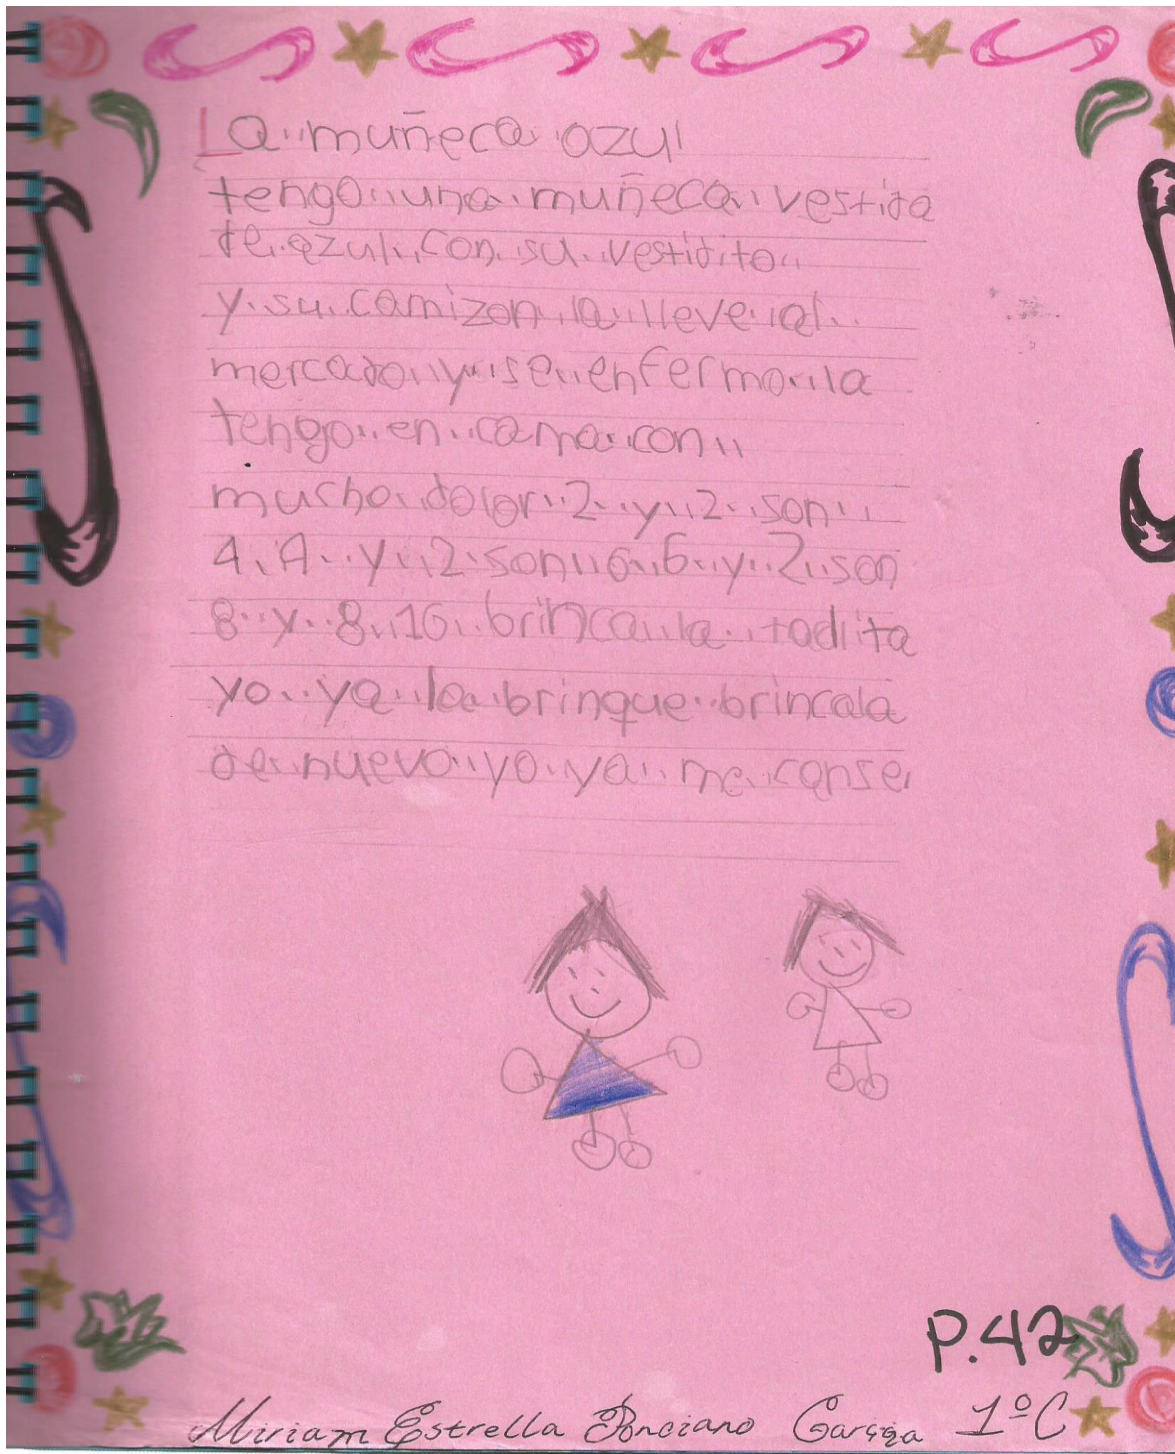 La muñeca azul
tengo una muñeca vestida
de azul con su vestidito
y su camizon la lleve al
mercado y se enfermo la
tengo en cama con
mucho dolor 2 y 2 son
4, 4 y 2 son 6 6 y 2 son
8 y 8 16 brinca la tadlita
yo ya la brinque brincala
de nuevo yo ya me canse
P.42
Miriam Estrella Ponciano García 1º C